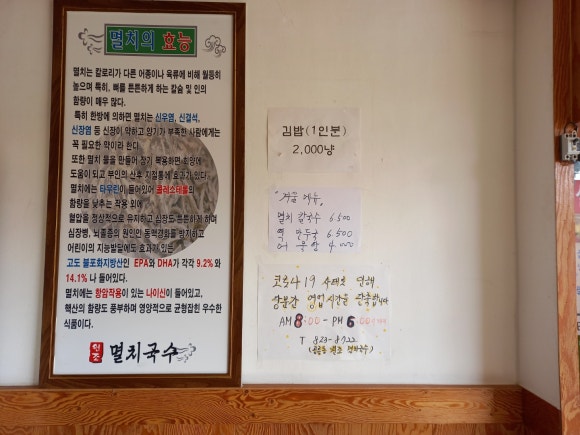 멸치의 효능
멸치는 칼로리가 다른 어종이나 육류에 비해 월등히
높으며 특히, 뼈를 튼튼하게 하는 칼슘 및 인의
함량이 매우 많다.
특히 한방에 의하면 멸치는 신우염, 신결석,
신장염 등 신장이 약하고 양기가 부족한 사람에게는
꼭 필요한 약이라 한다.
또한 멸치 물을 만들어 장기 복용하면 희망에
도움이 되고 부인의 산후 지절통에 효과가 있다.
멸치에는 타우린이 들어있어 콜레스테롤의
함량을 낮추는 작용 외에
혈압을 정상적으로 유지하고 심장도 튼튼하게 하며
심장병, 뇌졸중의 원인인 동맥경화를 방지하고
어린이의 지능발달에도 효과가 있는
고도 불포화지방산인 EPA와 DHA가 각각 9.2%와
14.1% 나 들어있다.
멸치에는 항암작용이 있는 나이신이 들어있고,
핵산의 함량도 풍부하며 영양적으로 균형잡힌 우수한
식품이다.
원조 멸치국수
김밥(1인분)
2,000냥
겨울 메뉴
멸치 칼국수 6,500
떡 만두국 6,500
어묵탕 4,000
코로나 19 사태로 인해
당분간 영업시간을 단축합니다
AM 8:00 - PM 6:00
T 823-8722
원조 멸치국수)